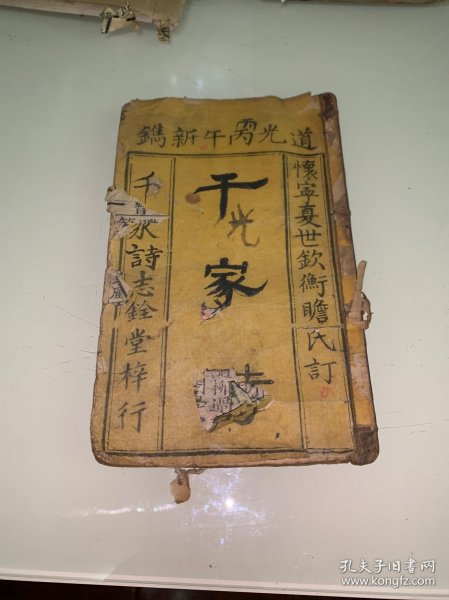 道光丙午新鐫
懷寧夏世欽衡瞻氏訂
千家
千家詩志銓堂梓行
孔夫子旧书网
www.kongfz.com